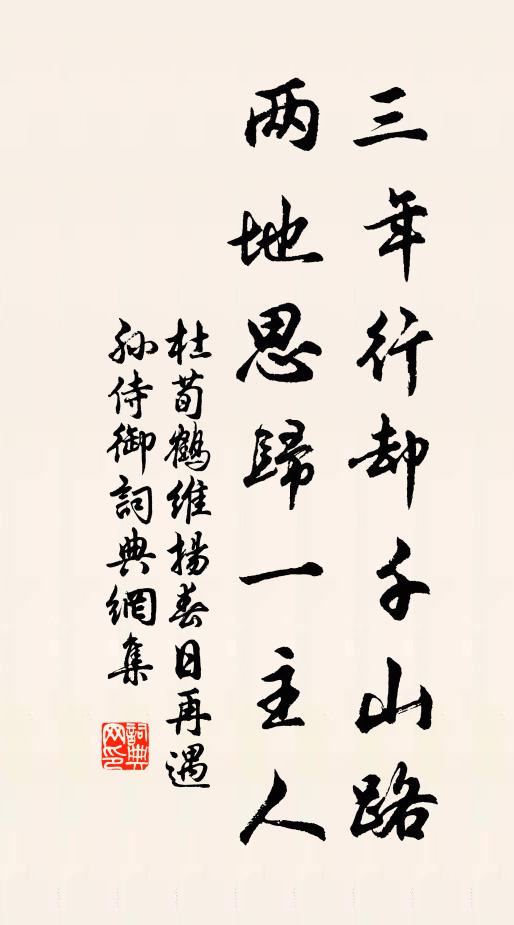 三年行却千山路
两地思歸一主人
杜荀鶴維揚春日再遇
孫侍御詞典網集
詞典网印